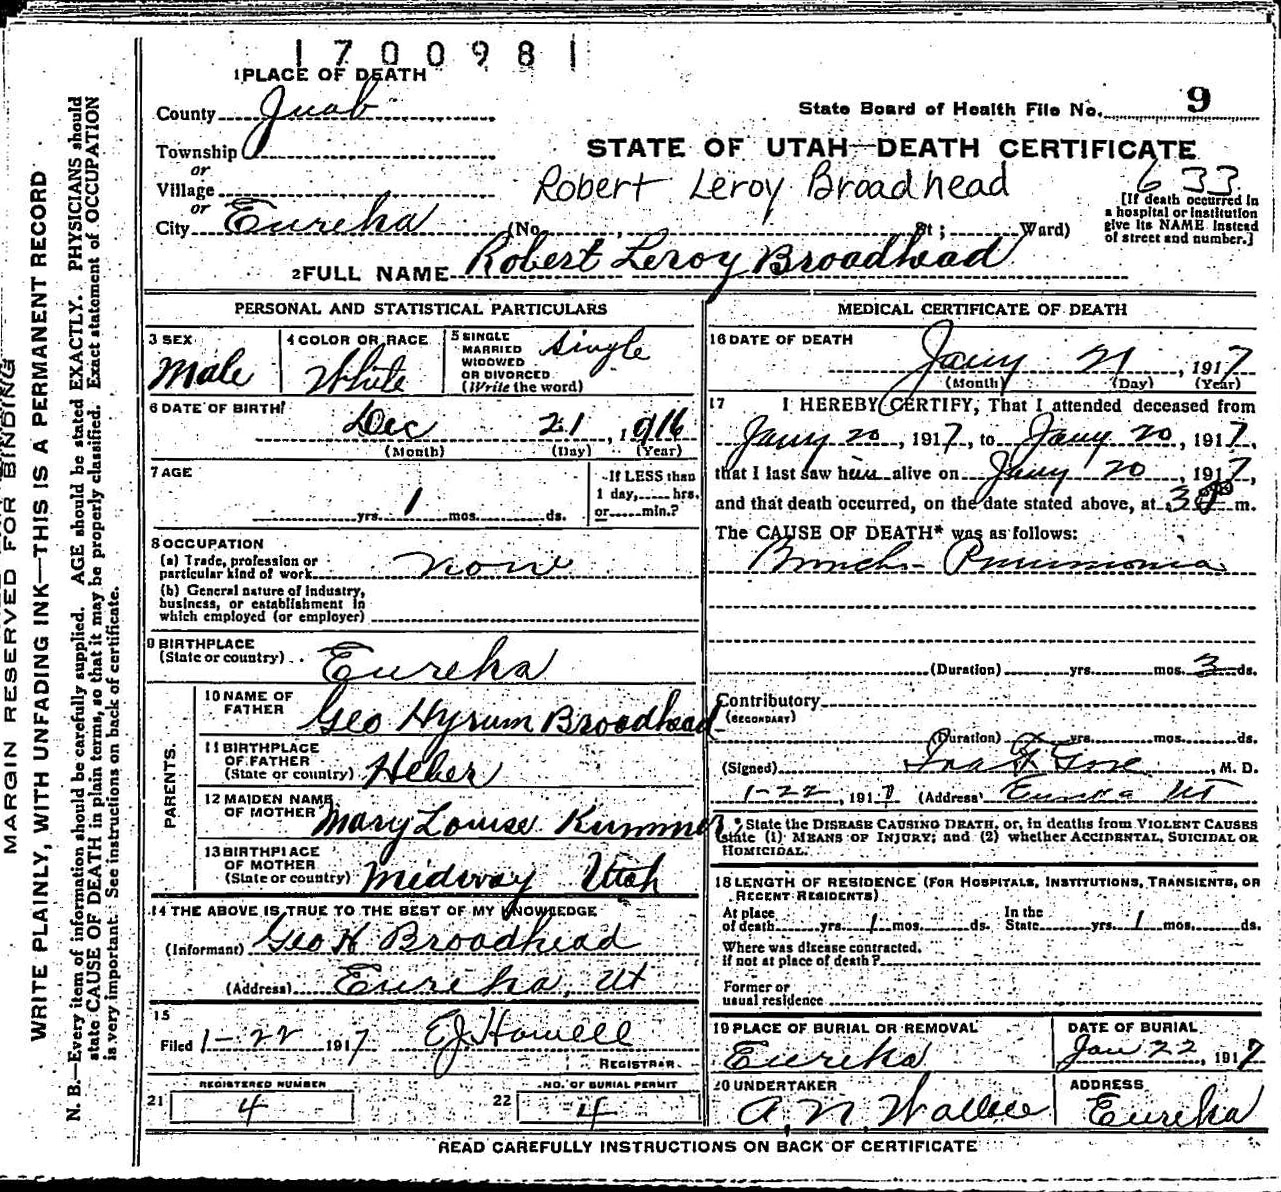 1700981
1 PLACE OF DEATH
County Juab
State Board of Health File No. 9
Township
or
Village
or
City Eureka
STATE OF UTAH—DEATH CERTIFICATE
Robert Leroy Broadhead
633
[If death occurred in
a hospital or institution
give its NAME instead
of street and number.]
(No. , St; Ward)
2 FULL NAME Robert Leroy Broadhead
PERSONAL AND STATISTICAL PARTICULARS
3 SEX
Male
4 COLOR OR RACE
White
5 SINGLE
MARRIED
WIDOWED
OR DIVORCED
(Write the word)
single
6 DATE OF BIRTH
Dec 21, 1916
(Month) (Day) (Year)
7 AGE
yrs. 1 mos. ds.
If LESS than
1 day, hrs.
or min.?
8 OCCUPATION
(a) Trade, profession or
particular kind of work none
(b) General nature of industry,
business, or establishment in
which employed (or employer)
9 BIRTHPLACE
(State or country) Eureka
PARENTS.
10 NAME OF
FATHER Geo Hyrum Broadhead
11 BIRTHPLACE
OF FATHER
(State or country) Heber
12 MAIDEN NAME
OF MOTHER Mary Louise Kummer
13 BIRTHPLACE
OF MOTHER
(State or country) Midway Utah
14 THE ABOVE IS TRUE TO THE BEST OF MY KNOWLEDGE
(Informant) Geo H Broadhead
(Address) Eureka, Ut
15
Filed 1-22 1917 EJ Howell
REGISTRAR.
REGISTERED NUMBER
21 4
NO. OF BURIAL PERMIT
22 4
MEDICAL CERTIFICATE OF DEATH
16 DATE OF DEATH
Jany 21, 1917
(Month) (Day) (Year)
17 I HEREBY CERTIFY, That I attended deceased from
Jany 20, 1917, to Jany 20, 1917,
that I last saw him alive on Jany 20, 1917,
and that death occurred, on the date stated above, at m.
The CAUSE OF DEATH* was as follows:
Broncho Pneumonia
(Duration) yrs. mos. 3 ds.
Contributory
(SECONDARY)
(Duration) yrs. mos. ds.
(Signed) , M. D.
1-22, 1917 (Address) Eureka Ut
* State the DISEASE CAUSING DEATH, or, in deaths from VIOLENT CAUSES
state (1) MEANS OF INJURY; and (2) whether ACCIDENTAL, SUICIDAL OR
HOMICIDAL.
18 LENGTH OF RESIDENCE (FOR HOSPITALS, INSTITUTIONS, TRANSIENTS, OR
RECENT RESIDENTS)
At place
of death yrs. 1 mos. ds.
In the
State yrs. 1 mos. ds.
Where was disease contracted,
if not at place of death?
Former or
usual residence
19 PLACE OF BURIAL OR REMOVAL
Eureka
DATE OF BURIAL
Jan 22, 1917
20 UNDERTAKER
A. N. Wallace
ADDRESS
Eureka
READ CAREFULLY INSTRUCTIONS ON BACK OF CERTIFICATE
MARGIN RESERVED FOR BINDING
WRITE PLAINLY, WITH UNFADING INK—THIS IS A PERMANENT RECORD
N. B.—Every item of information should be carefully supplied. AGE should be stated EXACTLY. PHYSICIANS should
state CAUSE OF DEATH in plain terms, so that it may be properly classified. Exact statement of OCCUPATION
is very important. See instructions on back of certificate.